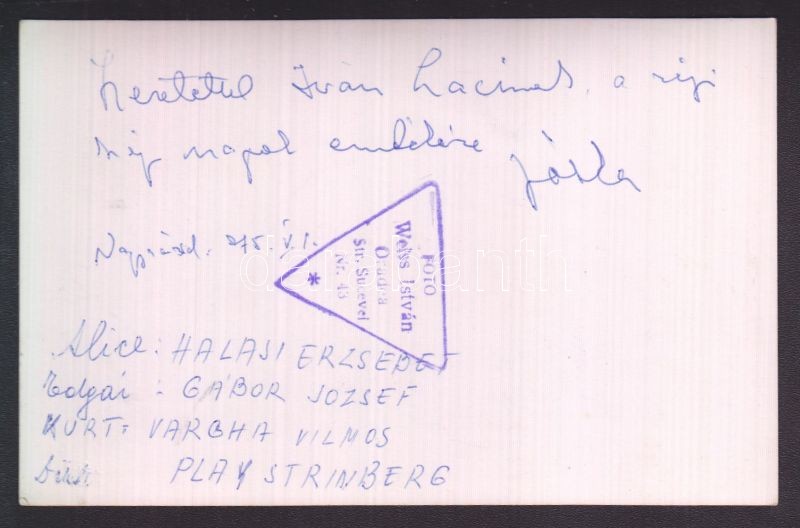 Szeretettel Iván Lacinak, a régi
szép napok emlékére Jóska
Nagyvárad. 975. V. 1.
FOTO
Weiss István
Oradea
Str. Sucevei
Nr. 43
*
Alice: HALASI ERZSEBET
Edgar: GÁBOR JOZSEF
KURT: VARGHA VILMOS
PLAY STRINBERG